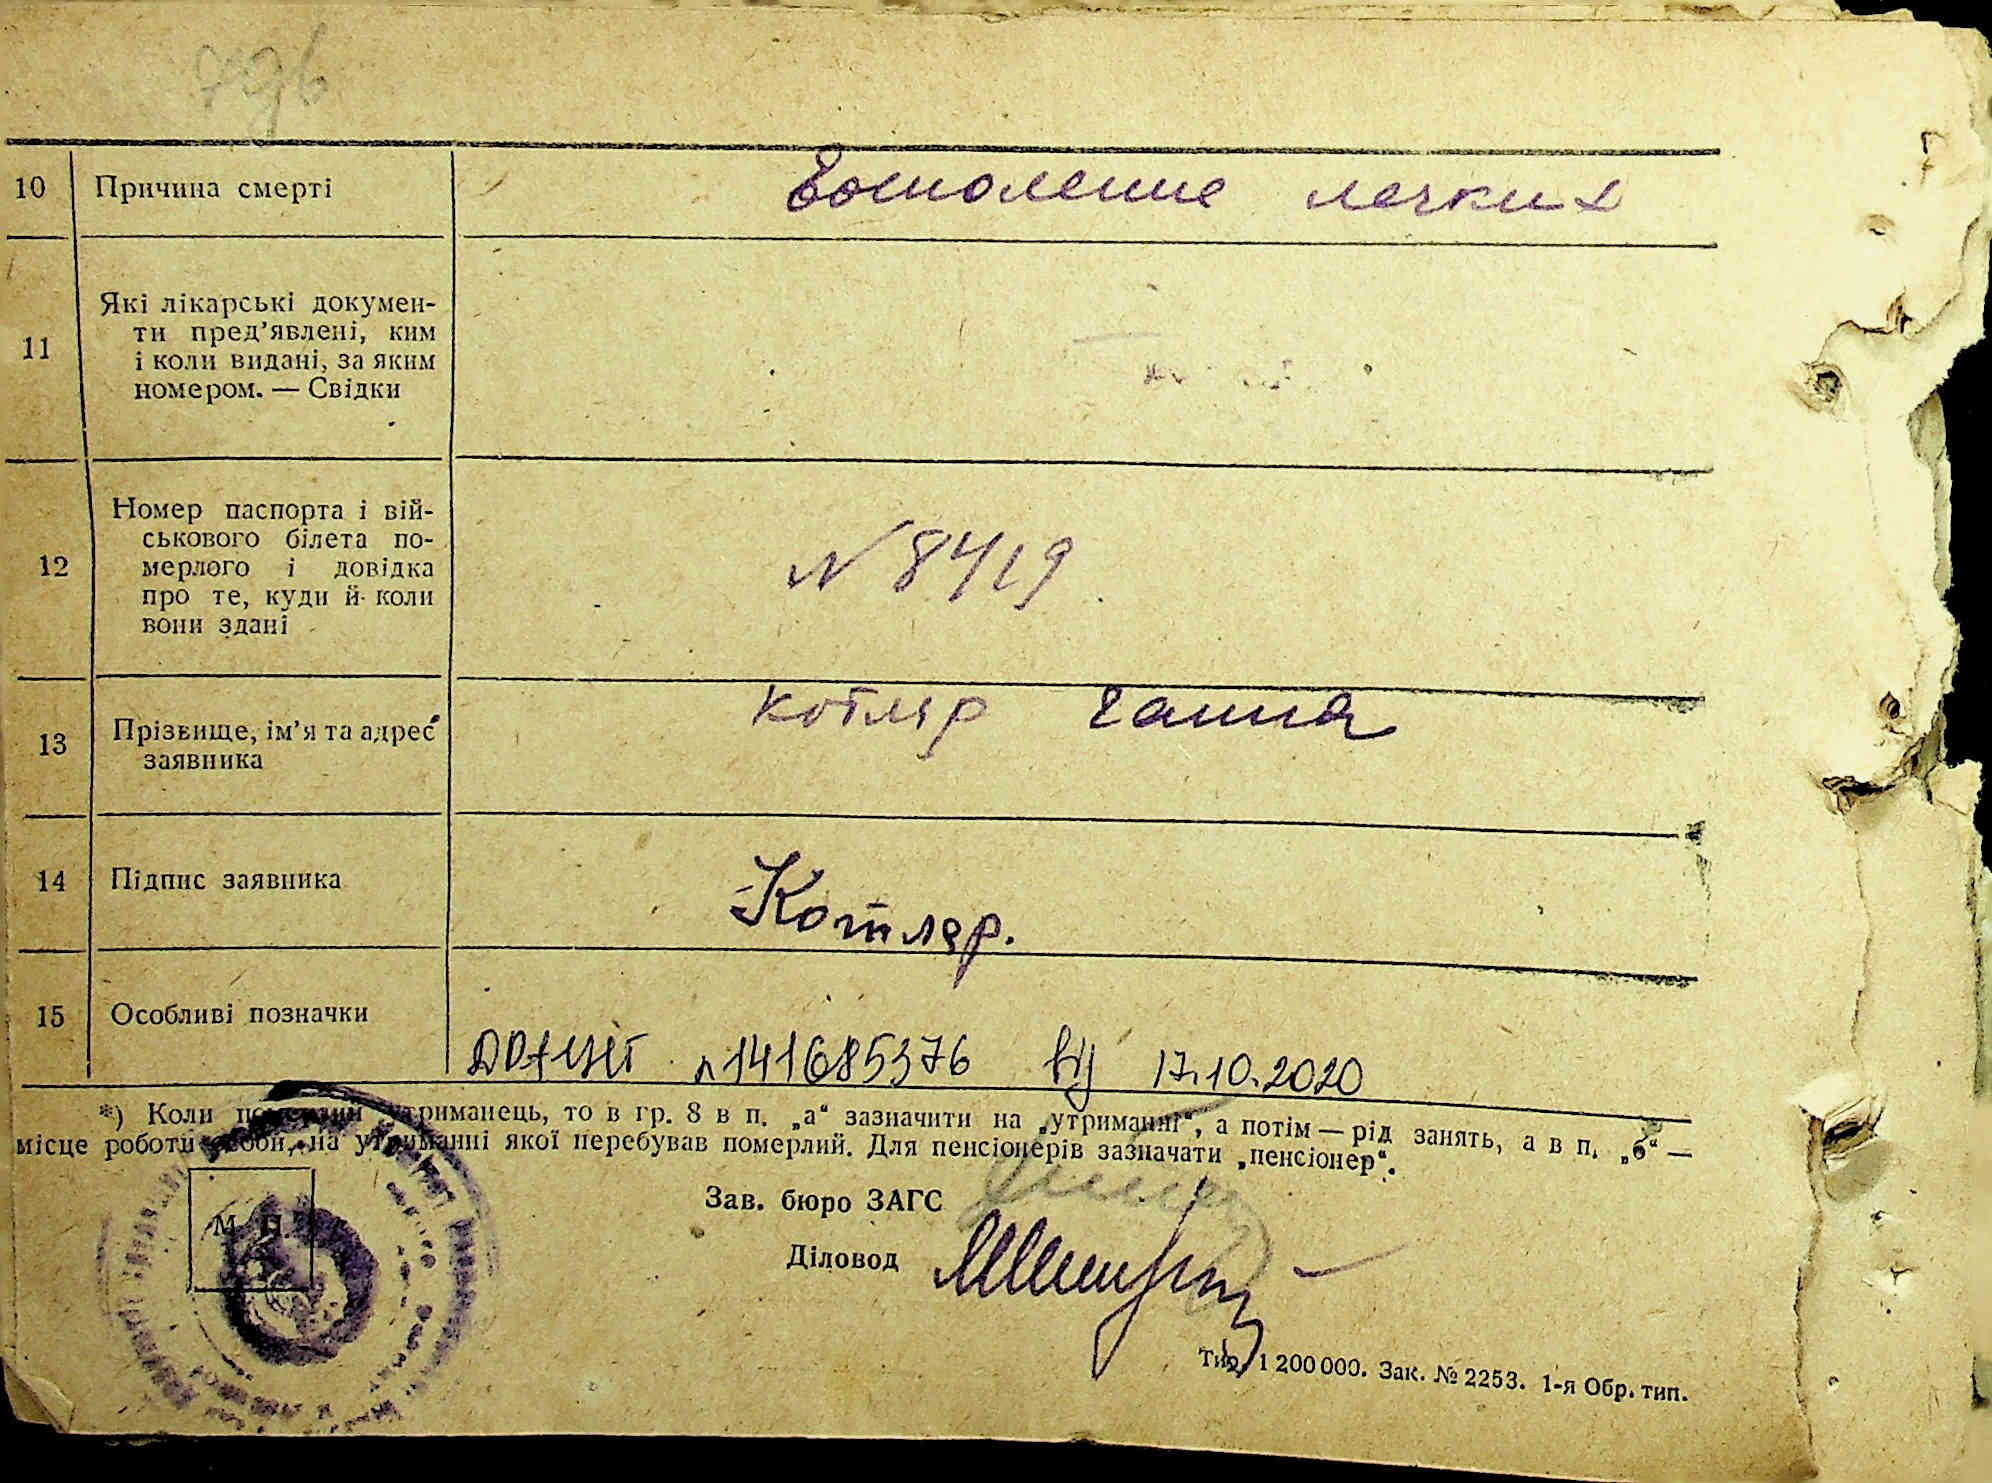 10 Причина смерті Восполение легких
11 Які лікарські докумен-
ти пред’явлені, ким
і коли видані, за яким
номером. — Свідки
12 Номер паспорта і вій-
ськового білета по-
мерлого і довідка
про те, куди й коли
вони здані
N 8419
13 Прізвище, ім’я та адрес
заявника
Котляр Ганна
14 Підпис заявника Котляр.
15 Особливі позначки
141685376 від 17.10.2020
*) Коли померлий утриманець, то в гр. 8 в п. „а“ зазначити на „утриманні“, а потім — рід занять, а в п. „б“ —
місце роботи особи, на утриманні якої перебував померлий. Для пенсіонерів зазначати „пенсіонер“.
М. П.
Зав. бюро ЗАГС
Діловод
Тир. 1 200 000. Зак. № 2253. 1-я Обр. тип.